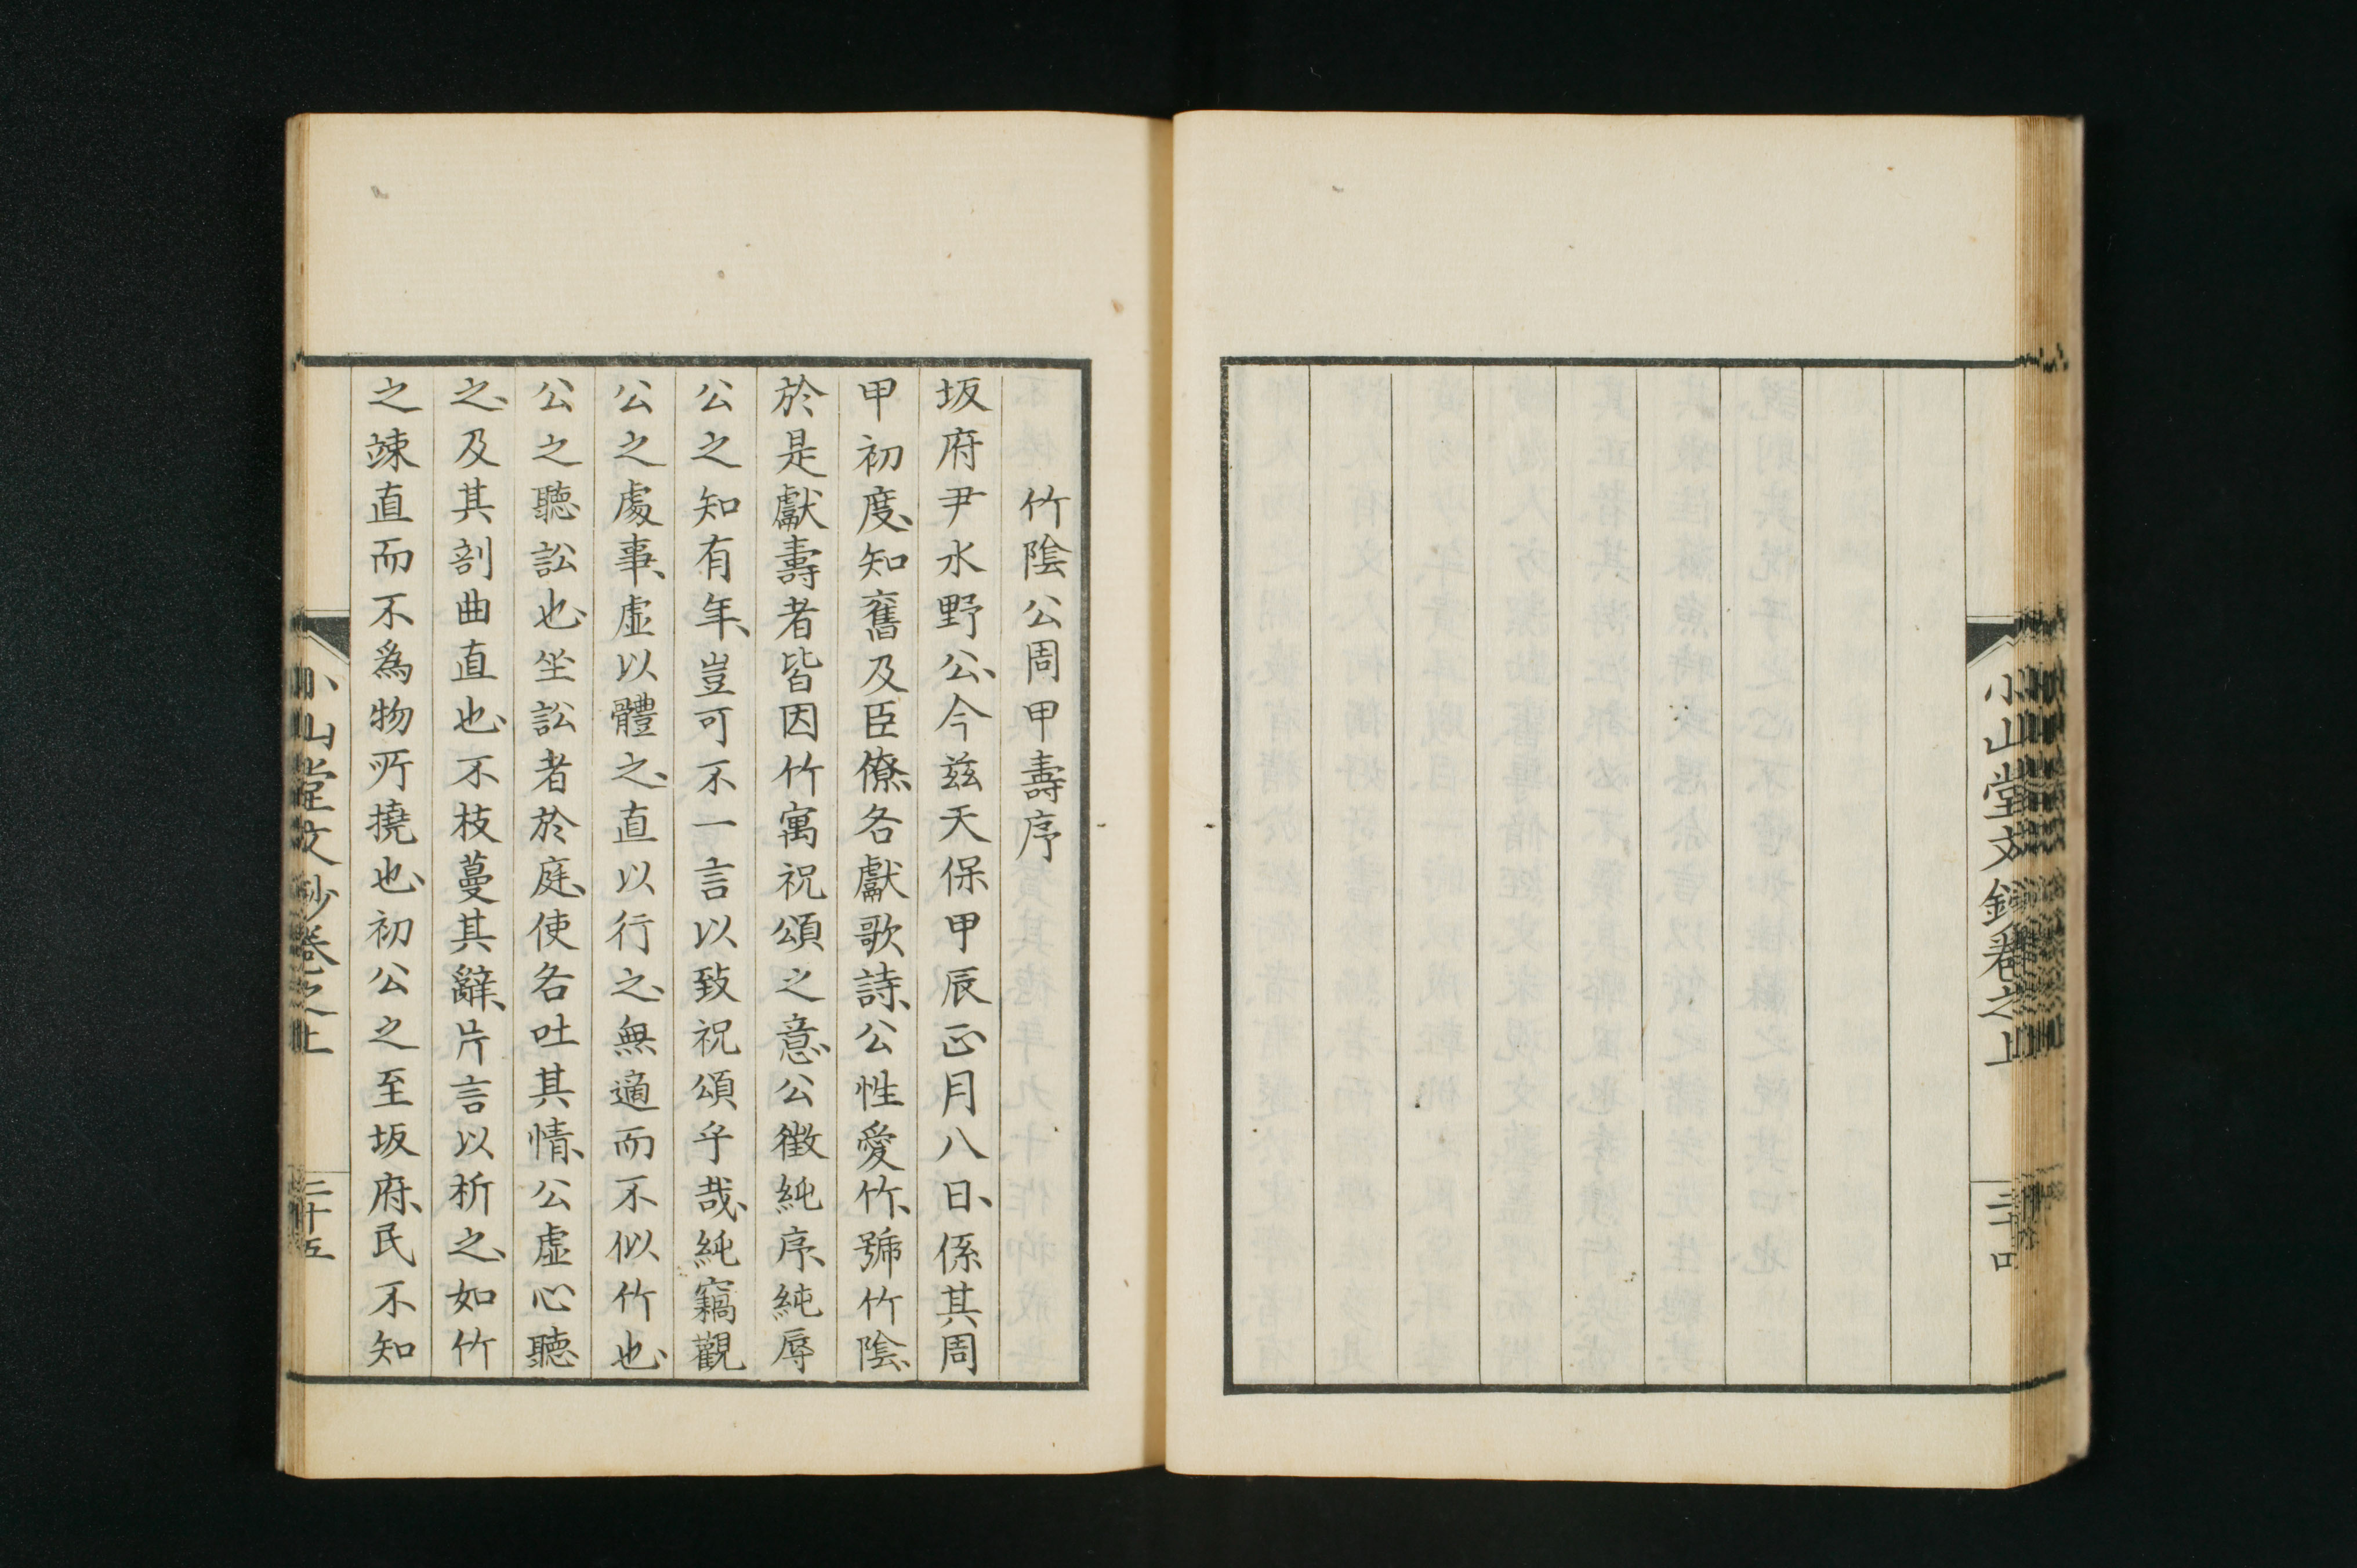 小山堂文鈔卷之上
二十四
竹陰公周甲壽序
坂府尹水野公、今茲天保甲辰正月八日、係其周
甲初度、知舊及臣僚、各獻歌詩、公性愛竹、號竹陰、
於是獻壽者皆因竹寓祝頌之意、公徵純序、純辱
公之知有年、豈可不一言以致祝頌乎哉、純竊觀
公之處事、虛以體之、直以行之、無適而不似竹也、
公之聽訟也、坐訟者於庭、使各吐其情、公虛心聽
之、及其剖曲直也、不枝蔓其辭、片言以折之、如竹
之竦直而不為物所撓也、初公之至坂府、民不知
小山堂文鈔卷之上
二十五